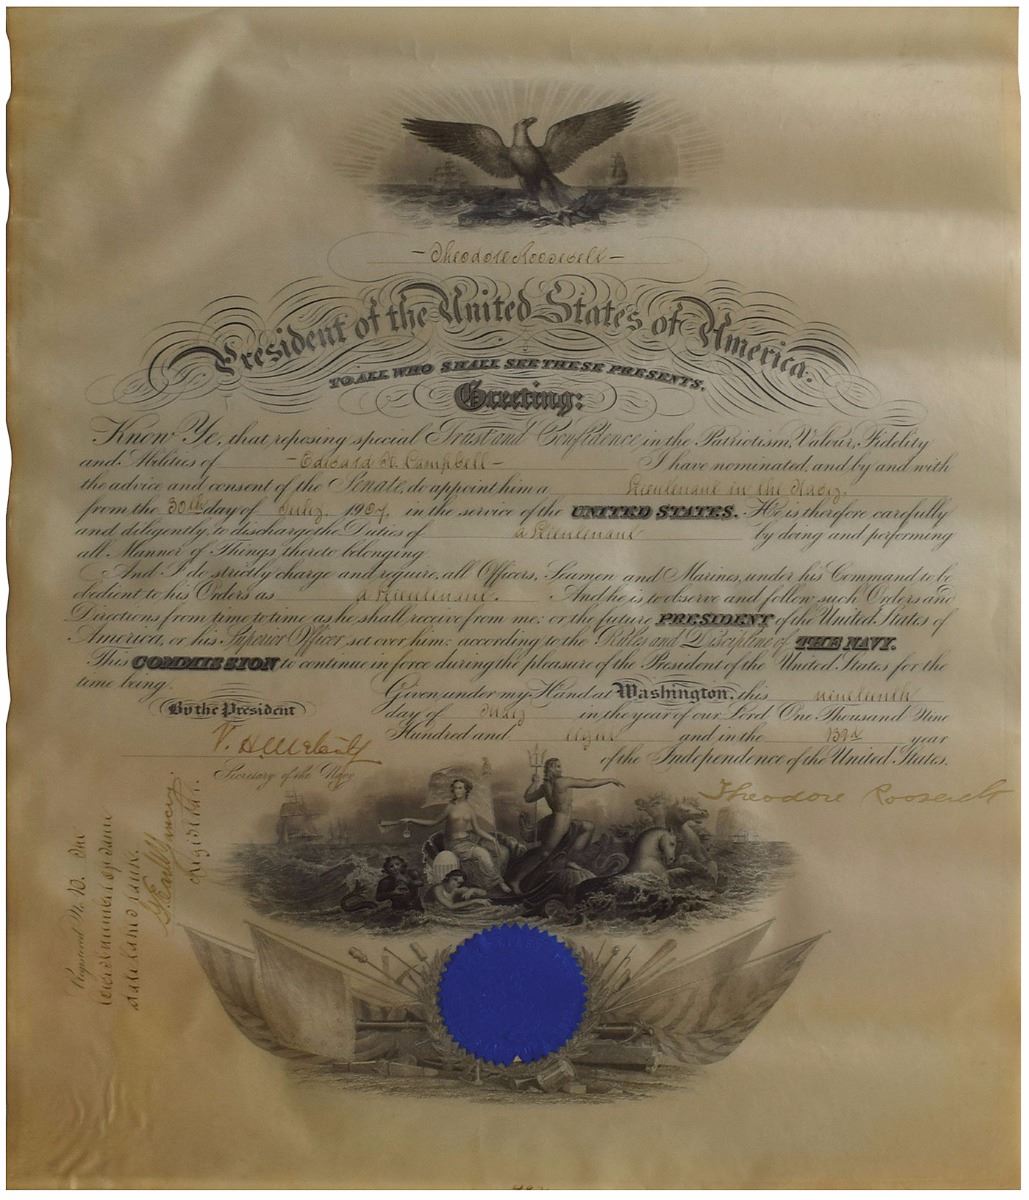 - Theodore Roosevelt -
President of the United States of America.
TO ALL WHO SHALL SEE THESE PRESENTS,
Greeting:
Know Ye, that reposing special Trust and Confidence in the Patriotism, Valour, Fidelity
and Abilities of - Edward H. Campbell - I have nominated, and by and with
the advice and consent of the Senate, do appoint him a Lieutenant in the Navy.
from the 30th day of July, 1907, in the service of the UNITED STATES. He is therefore carefully
and diligently to discharge the Duties of a Lieutenant by doing and performing
all Manner of Things thereto belonging.
And I do strictly charge and require all Officers, Seamen and Marines, under his Command to be
obedient to his Orders as a Lieutenant. And he is to observe and follow such Orders and
Directions from time to time as he shall receive from me, or the future PRESIDENT of the United States of
America, or his Superior Officer set over him, according to the Rules and Discipline of THE NAVY.
This COMMISSION to continue in force during the pleasure of the President of the United States for the
time being.
Given under my Hand at Washington, this nineteenth
By the President
day of in the year of our Lord One Thousand Nine
Hundred and eight and in the 132d year
of the Independence of the United States.
V. H. Metcalf
Secretary of the Navy
Theodore Roosevelt
Registered No.
and number by same
date and rank.
Registrar.